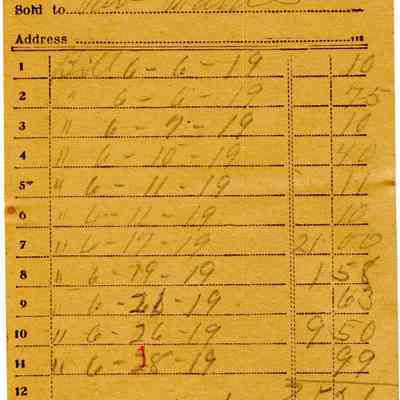 Sold to
Address
1 Bill 6-6-19 10
2 " 6-6-19 75
3 " 6-9-19 10
4 " 6-10-19 40
5 " 6-11-19 11
6 " 6-11-19 10
7 " 6-17-19 21 00
8 " 6-19-19 1 58
9 " 6-26-19 63
10 " 6-26-19 9 50
11 " 6-28-19 99
12